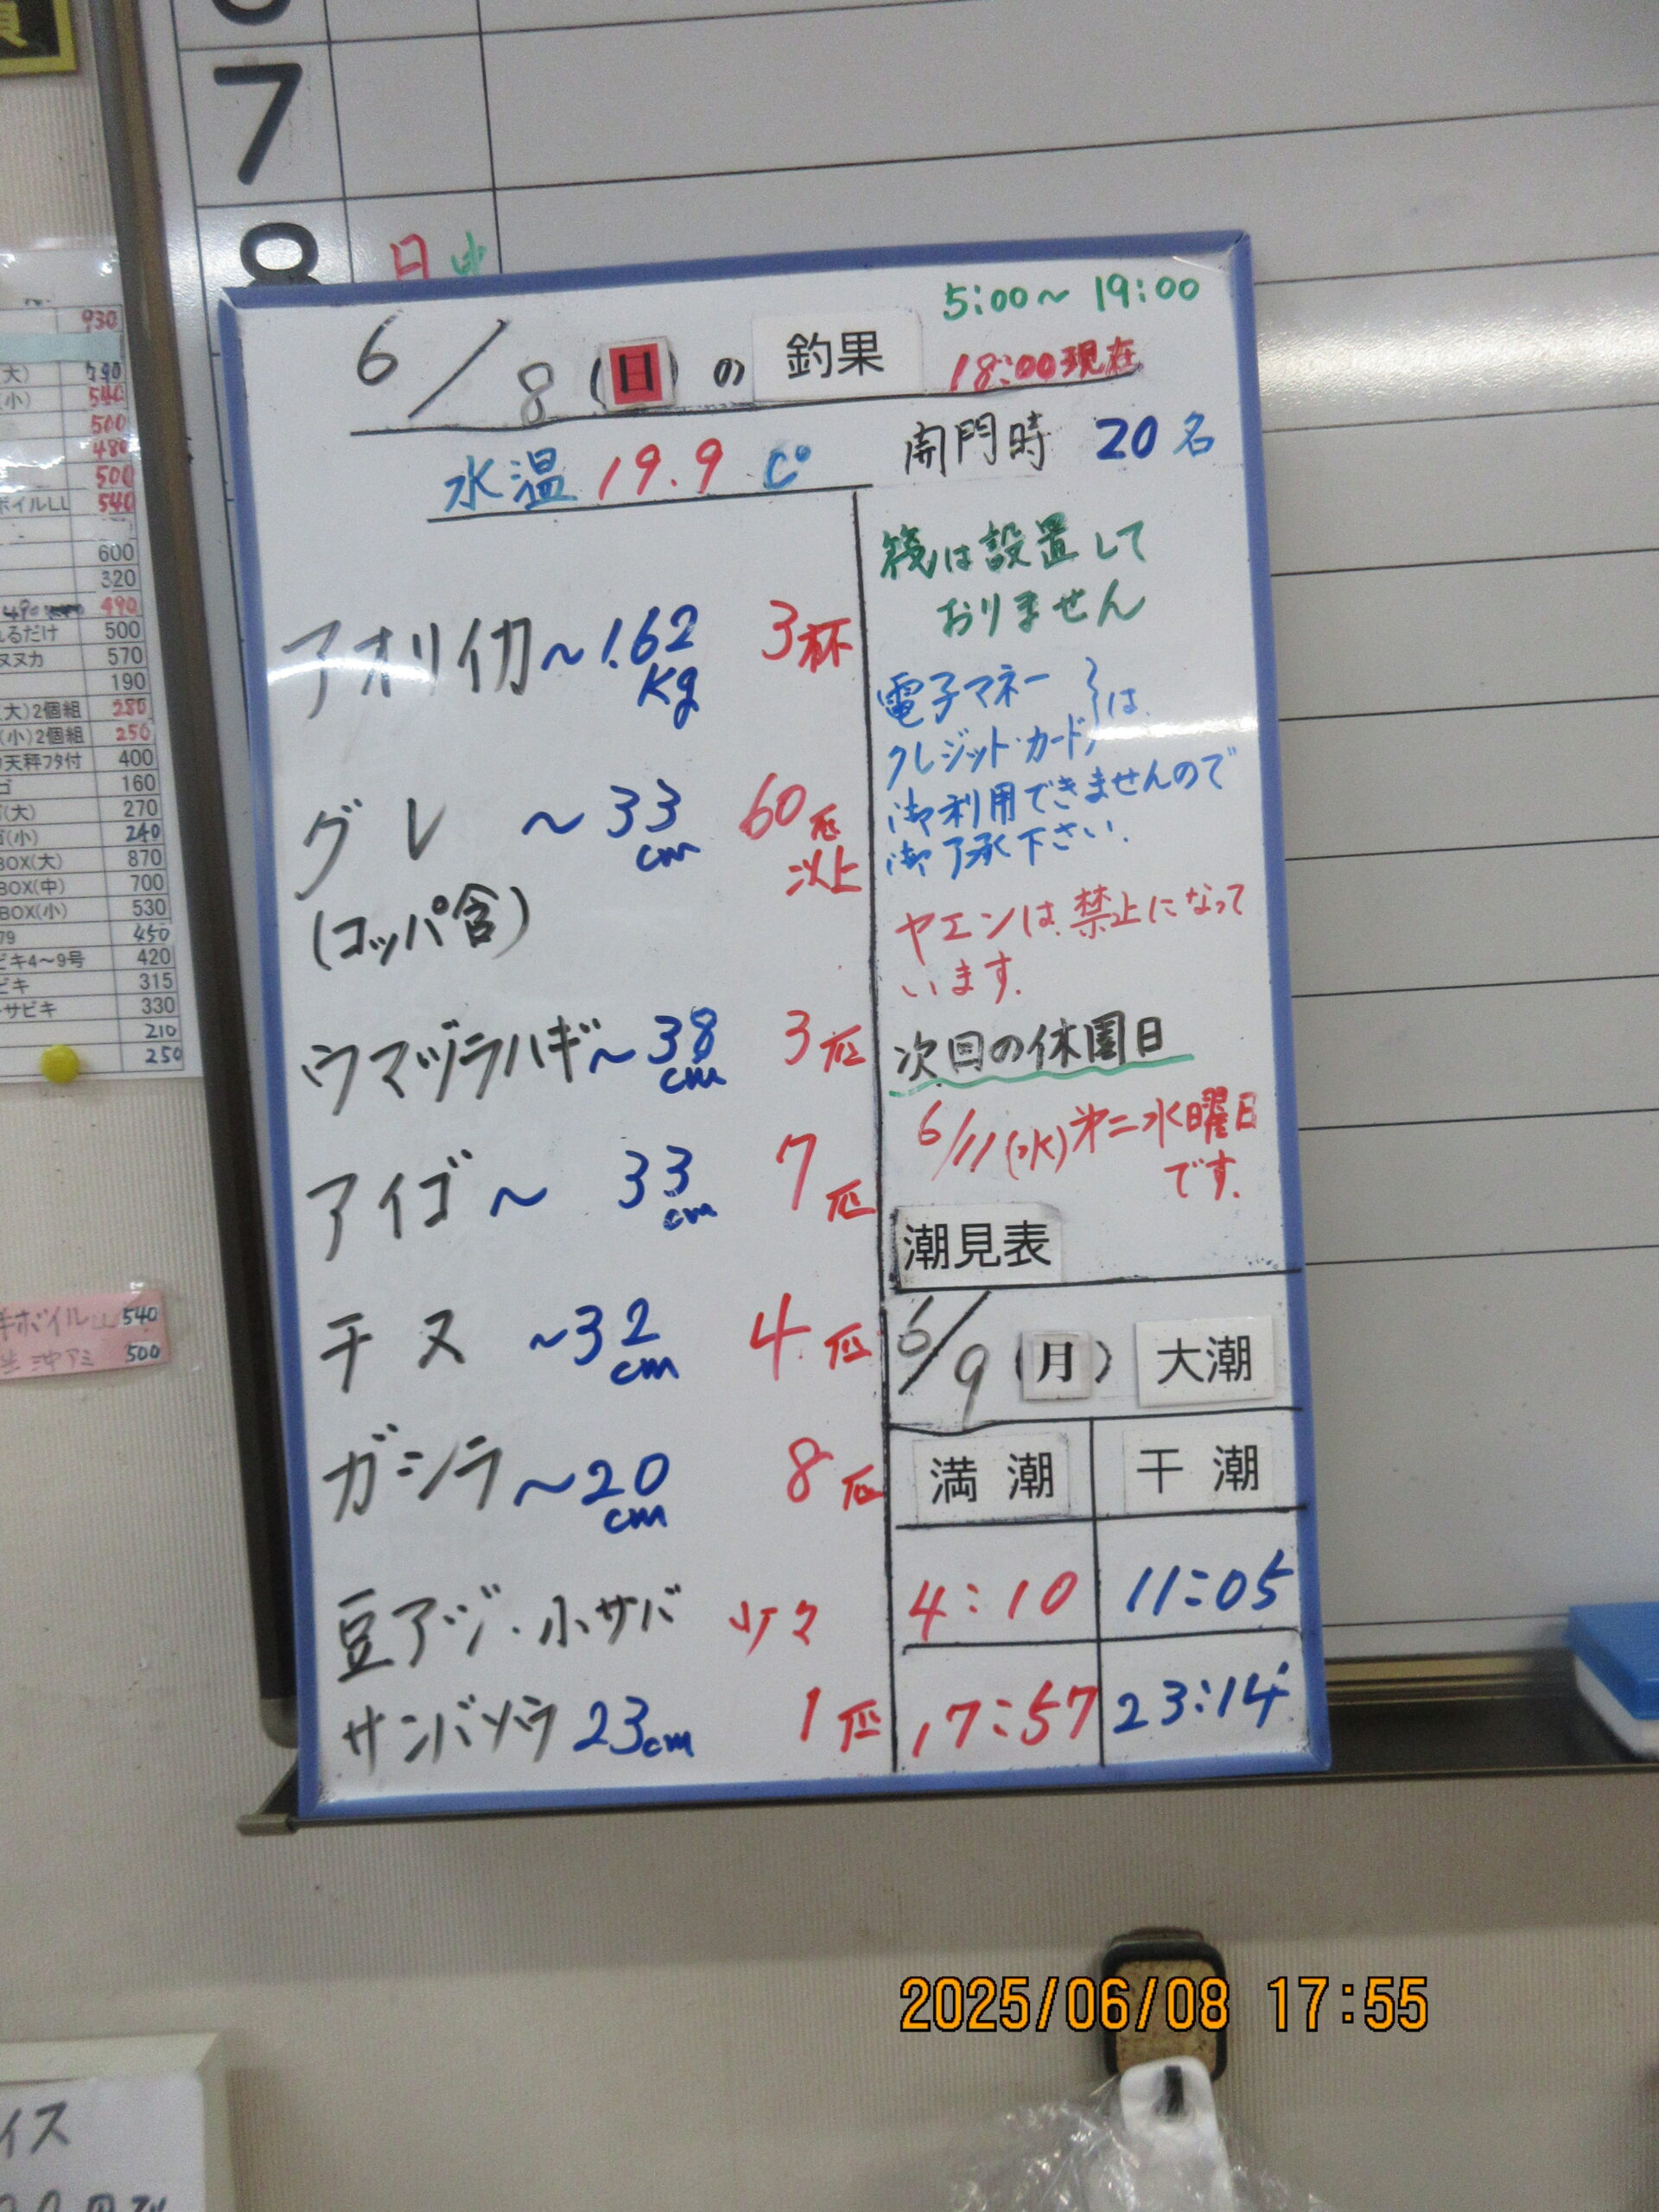 7
8
日
6/8(日)の釣果
5:00～19:00
18:00現在
水温 19.9 C°
開門時 20名
アオリイカ～1.62Kg 3杯
グレ ～33cm 60匹以上
(コッパ含)
ウマヅラハギ～38cm 3匹
アイゴ～ 33cm 7匹
チヌ ～32cm 4匹
ガシラ～20cm 8匹
豆アジ・小サバ 少々
サンバソウ 23cm 1匹
筏は設置して
おりません
電子マネー
クレジット・カード}は
御利用できませんので
御了承下さい.
ヤエンは禁止になって
います.
次回の休園日
6/11(水)第二水曜日
です.
潮見表
6/9(月) 大潮
満潮 干潮
4:10 11:05
17:57 23:14
930
大) 790
小) 540
500
480
500
ボイルLL 540
600
320
490
るだけ 500
ヌカ 570
190
(大)2個組 280
(小)2個組 250
天秤フタ付 400
ゴ 160
(大) 270
(小) 240
BOX(大) 870
BOX(中) 700
BOX(小) 530
79 450
ビキ4～9号 420
ビキ 315
サビキ 330
210
250
ボイルLL 540
沖アミ 500
イス
2025/06/08 17:55